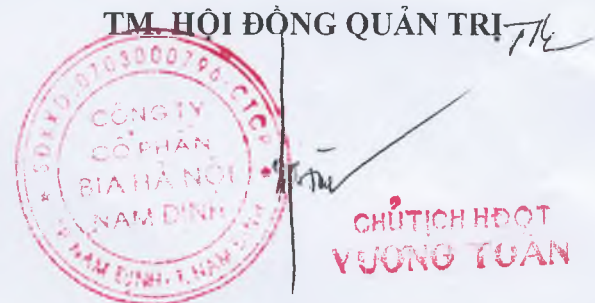 TM. HỘI ĐỒNG QUẢN TRỊ
SĐKKD:0703000796-CTCP
CÔNG TY
CỔ PHẦN
BIA HÀ NỘI
NAM ĐỊNH
TP NAM ĐỊNH - T. NAM ĐỊNH
CHỦ TỊCH HĐQT
VƯƠNG TOÀN